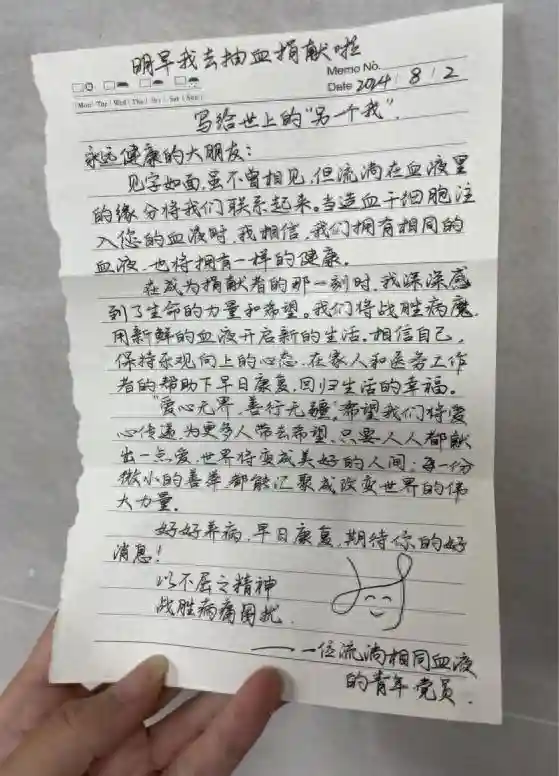 明早我去抽血捐献啦
Memo No.
Mon Tue Wed Thu Fri Sat Sun
Date 2024 / 8 / 2
写给世上的“另一个我”.
永远健康的大朋友:
见字如面,虽不曾相见,但流淌在血液里
的缘分将我们联系起来。当造血干细胞注
入您的血液时,我相信,我们拥有相同的
血液,也将拥有一样的健康.
在成为捐献者的那一刻时,我深深感
到了生命的力量和希望。我们将战胜病魔,
用新鲜的血液开启新的生活.相信自己,
保持乐观向上的心态,在家人和医务工作
者的帮助下早日康复,回归生活的幸福。
“爱心无界,善行无疆”,希望我们将爱
心传递,为更多人带去希望.只要人人都献
出一点爱,世界将变成美好的人间;每一份
微小的善举,都能汇聚成改变世界的伟
大力量.
好好养病,早日康复,期待你的好
消息!
以不屈之精神
战胜病痛困扰.
——一位流淌相同血液
的青年党员.